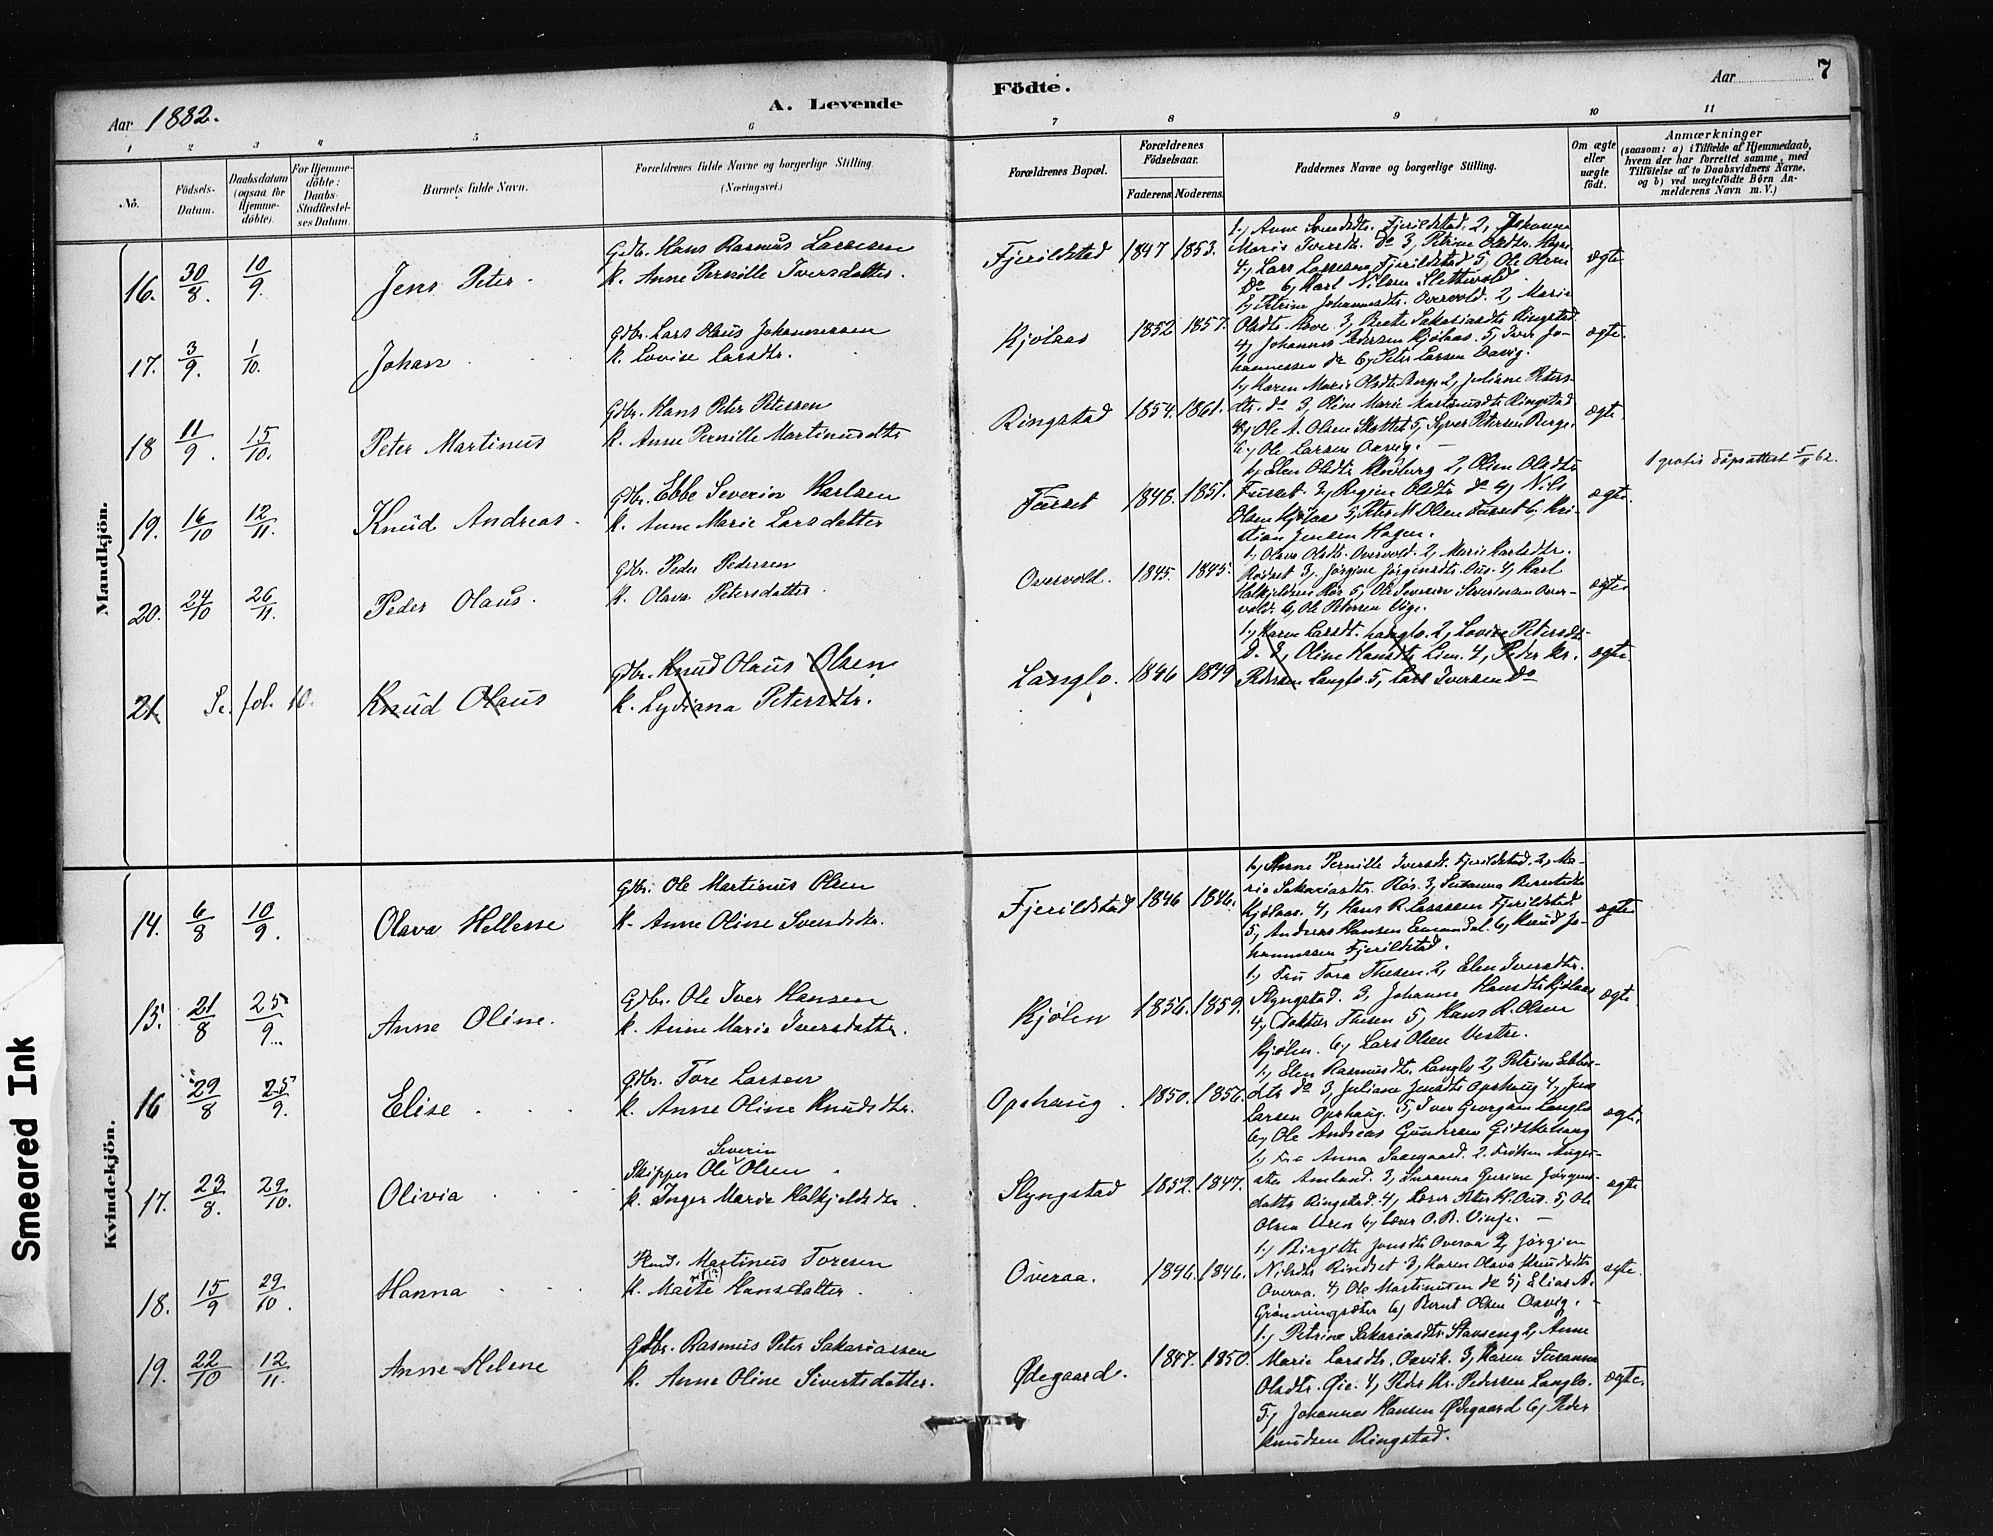 Aar 1882.
A. Levende
Födte.
Aar 7
1 2 3 4 5 6 7 8 9 10 11
No.
Födsels-Datum.
Daabsdatum (ogsaa for Hjemme-döbte).
For Hjemme-döbte: Daabs-Stadfæstel-ses Datum.
Barnets fulde Navn.
Forældrenes fulde Navne og borgerlige Stilling. (Næringsvei.)
Forældrenes Bopæl.
Forældrenes Födselsaar.
Faderens. Moderens.
Faddernes Navne og borgerlige Stilling.
Om ægte eller uægte födt.
Anmærkninger
(saasom: a) i Tilfælde af Hjemmedaab, hvem der har forrettet samme, med Tilföielse af to Daabsvidners Navne, og b) ved uægtefödte Börn An-melderens Navn m. V.)
Mandkjön.
16. 30/8. 10/9. Jens Peter. Gdbr. Hans Rasmus Larssen
K. Anne Pernille Iversdatter. Fjerildstad 1847 1853.
1, Anne Svendsdtr. Fjerildstad. 2, Johanne
Marie Iversdtr. do 3, Petrine Olsdtr.
4, Lars Larssen Fjerildstad 5, Ole Olsen
Do 6, Karl Nilsen Slettevold.
ægte
17. 3/9. 1/10. Johan. Gdbr. Lars Olaus Johannessen
K. Lovise Larsdtr. Kjölaas 1852 1857.
1, Petrine Johannesdtr. Overvold. 2, Marie
Olsdtr. 3, Berte Sakariasdtr. Ringstad
4, Johannes Pedersen Kjölaas. 5, Iver Jo-
hannessen do 6, Peter Larsen Aavig.
ægte.
18 11/9. 15/10. Peter Martinus Gdbr. Hans Peter Petersen
K. Anne Pernille Martinusdtr. Ringstad 1854. 1861.
1, Karen Marie Olsdtr. Berge 2, Juliane Peters-
dtr. do 3, Oline Marie Martinusdtr. Ringstad
4, Ole A. Olsen 5, Syver Petersen Berge.
6, Ole Larsen Aavig.
ægte
19. 16/10 12/11. Knud Andreas. Gdbr. Ebbe Severin Karlsen
K. Anne Marie Larsdatter Furset 1848. 1851.
1, Elen Olsdtr. 2, Oline Olsdtr.
Furset. 3, Regine Olsdtr. do 4, Nils
Olsen Kjölaas 5, Peter M. Olsen Furset 6, Kri-
stian Jensen Hagen.
ægte.
1 gratis dåpsattest 5/11 62.
20. 24/10 26/11. Peder Olaus. Gdbr. Peder Pedersen
K. Olava Petersdatter. Overvold. 1845. 1845.
1, Olave Olsdtr. Overvold. 2, Marie
Rödset 3, Jörgine Jörgensdtr. Aus. 4, Karl
Halkjeldsen Rör 5, Ole Severin Sivertssen Over-
vold. 6, Ole Petersen
ægte.
21. Se fol. 10. Knud Olaus Gdbr. Knud Olaus Olsen
K. Lydiana Petersdtr. Langlo. 1846 1849
1, Karen Larsdtr. Langlo. 2, Lovise Petersdtr.
D. 3, Oline Hansdtr. Lien. 4, Peder Kr.
Pedersen Langlo. 5, Lars Iversen do
ægte.
Kvindekjön.
14. 6/8 10/9. Olava Hellene Gdbr. Ole Martinus Olsen
K. Anne Oline Svendsdtr. Fjerildstad 1846 1846.
1, Anne Pernille Iversdt. Fjerildstad. 2, Ma-
rie Sakariasdtr. Rör. 3, Susanna Berntsdtr.
Kjölaas. 4, Hans R. Larssen Fjerildstad.
5, Andreas Hansen 6, Knud Jo-
hannessen Fjerildstad.
ægte
15. 21/8 25/9. Anne Oline. Gdbr. Ole Iver Hansen
K. Anne Marie Iversdatter. Kjölen 1856. 1859.
1, Fru Tora Thesen. 2, Elen Iversdtr.
Slyngstad. 3, Johanne Hansdtr. Kjölaas
4, Doktor Thesen 5, Hans R. Olsen
Kjölen. 6, Lars Olsen Vestre.
ægte
16 29/8 25/9. Elise. Gdbr. Tore Larsen
K. Anne Oline Knudsdtr. Opshaug. 1850. 1856.
1, Elen Rasmusdtr. Langlo 2, Petrine Ebbes-
dtr. do 3, Juliane Jensdtr. Opshaug 4, Jens
Larsen Opshaug. 5, Iver Georgsen Langlo
6, Ole Andreas Gundersen Gidskehaug
ægte.
17. 23/8. 29/10. Olivia Skipper Ole Severin Olsen
K. Inger Marie Halkjeldsdtr. Slyngstad 1852. 1847.
1, Fru Anna Saaegaard. 2. Fröken Augu-
sta Amland. 3, Susanna Gurine Jörgens-
datter Ringstad. 4, Peter K. Aus. 5, Ole
Olsen Uren 6, O. R. Vinje.
ægte
18. 15/9 29/10. Hanna Martinus Toresen
K. Marte Hansdatter. Overaa. 1846. 1846.
1, Birgitte Jonsdtr. Overaa 2, Jörgine
Nilsdtr. Rindset 3, Karen Olava Knudsdtr.
Overaa. 4, Ole Martinussen do 5, Elias A.
Grönningsæter 6, Bernt Olsen Aavig.
ægte.
19. 22/10 12/11. Anne Helene Gdbr. Rasmus Peter Sakariassen
K. Anne Oline Sivertsdatter. Ødegaard. 1847. 1850.
1, Petrine Sakariasdtr. Stavseng 2, Anne
Marie Larsdtr. Aavik. 3, Karen Susanna
Olsdtr. Øie. 4, Peder Kr. Pedersen Langlo.
5, Johannes Hansen Ødegaard 6, Peder
Knudsen Ringstad.
ægte.
Smeared Ink